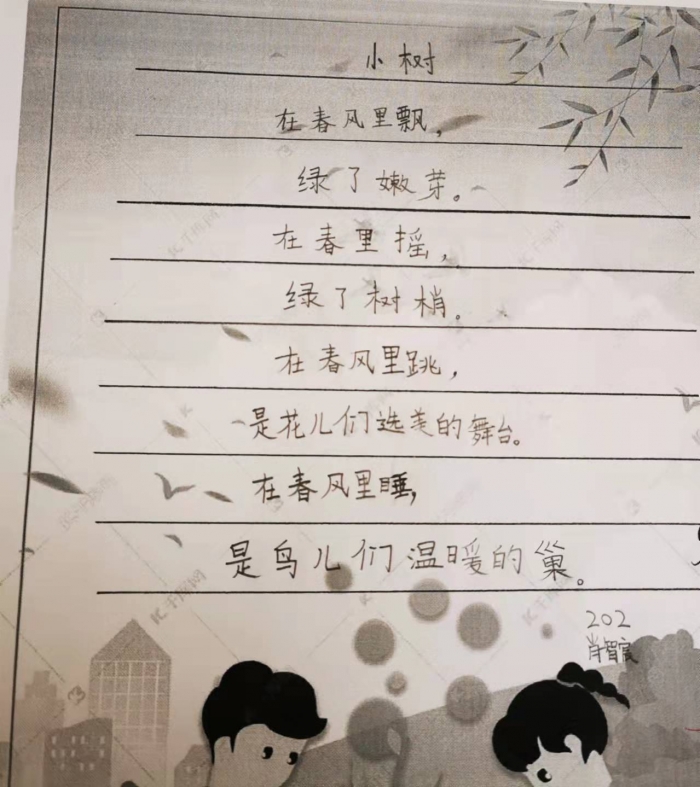 小树
在春风里飘，
绿了嫩芽。
在春里摇，
绿了树梢。
在春风里跳，
是花儿们选美的舞台。
在春风里睡，
是鸟儿们温暖的巢。
202
肖智宸